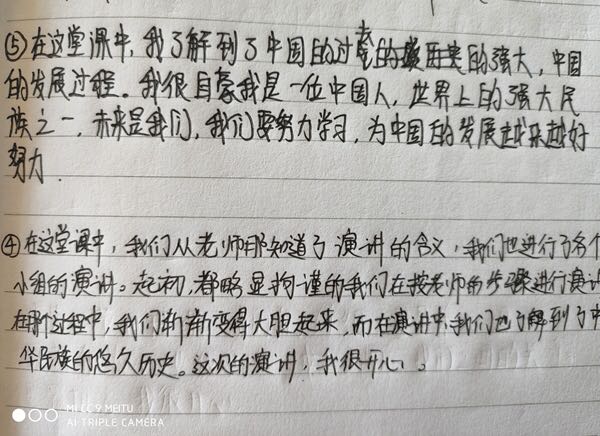 ⑤在这堂课中,我了解到了中国的过去的历史的强大,中国
的发展过程。我很自豪我是一位中国人,世界上的强大民
族之一,未来是我们,我们要努力学习,为中国的发展越来越好
努力.
④在这堂课中,我们从老师那知道了演讲的含义,我们也进行了各个
小组的演讲。起初,都略显拘谨的我们在按老师的步骤进行演讲
在那个过程中,我们渐渐变得大胆起来,而在演讲中,我们也了解到了中
华民族的悠久历史。这次的演讲,我很开心。
MI CC 9 MEITU
AI TRIPLE CAMERA